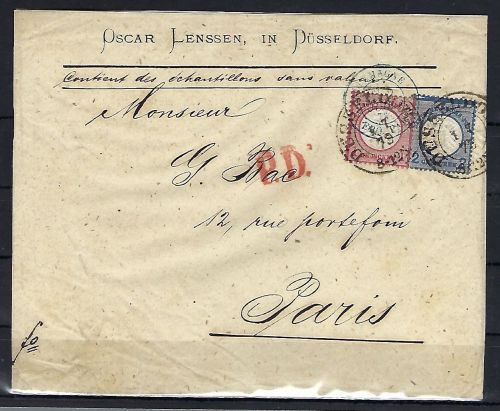 OSCAR LENSSEN, IN DÜSSELDORF.
Contient des échantillons sans valeur
Monsieur
G. Bac
P.D.
12, rue portefoin
Paris
fo